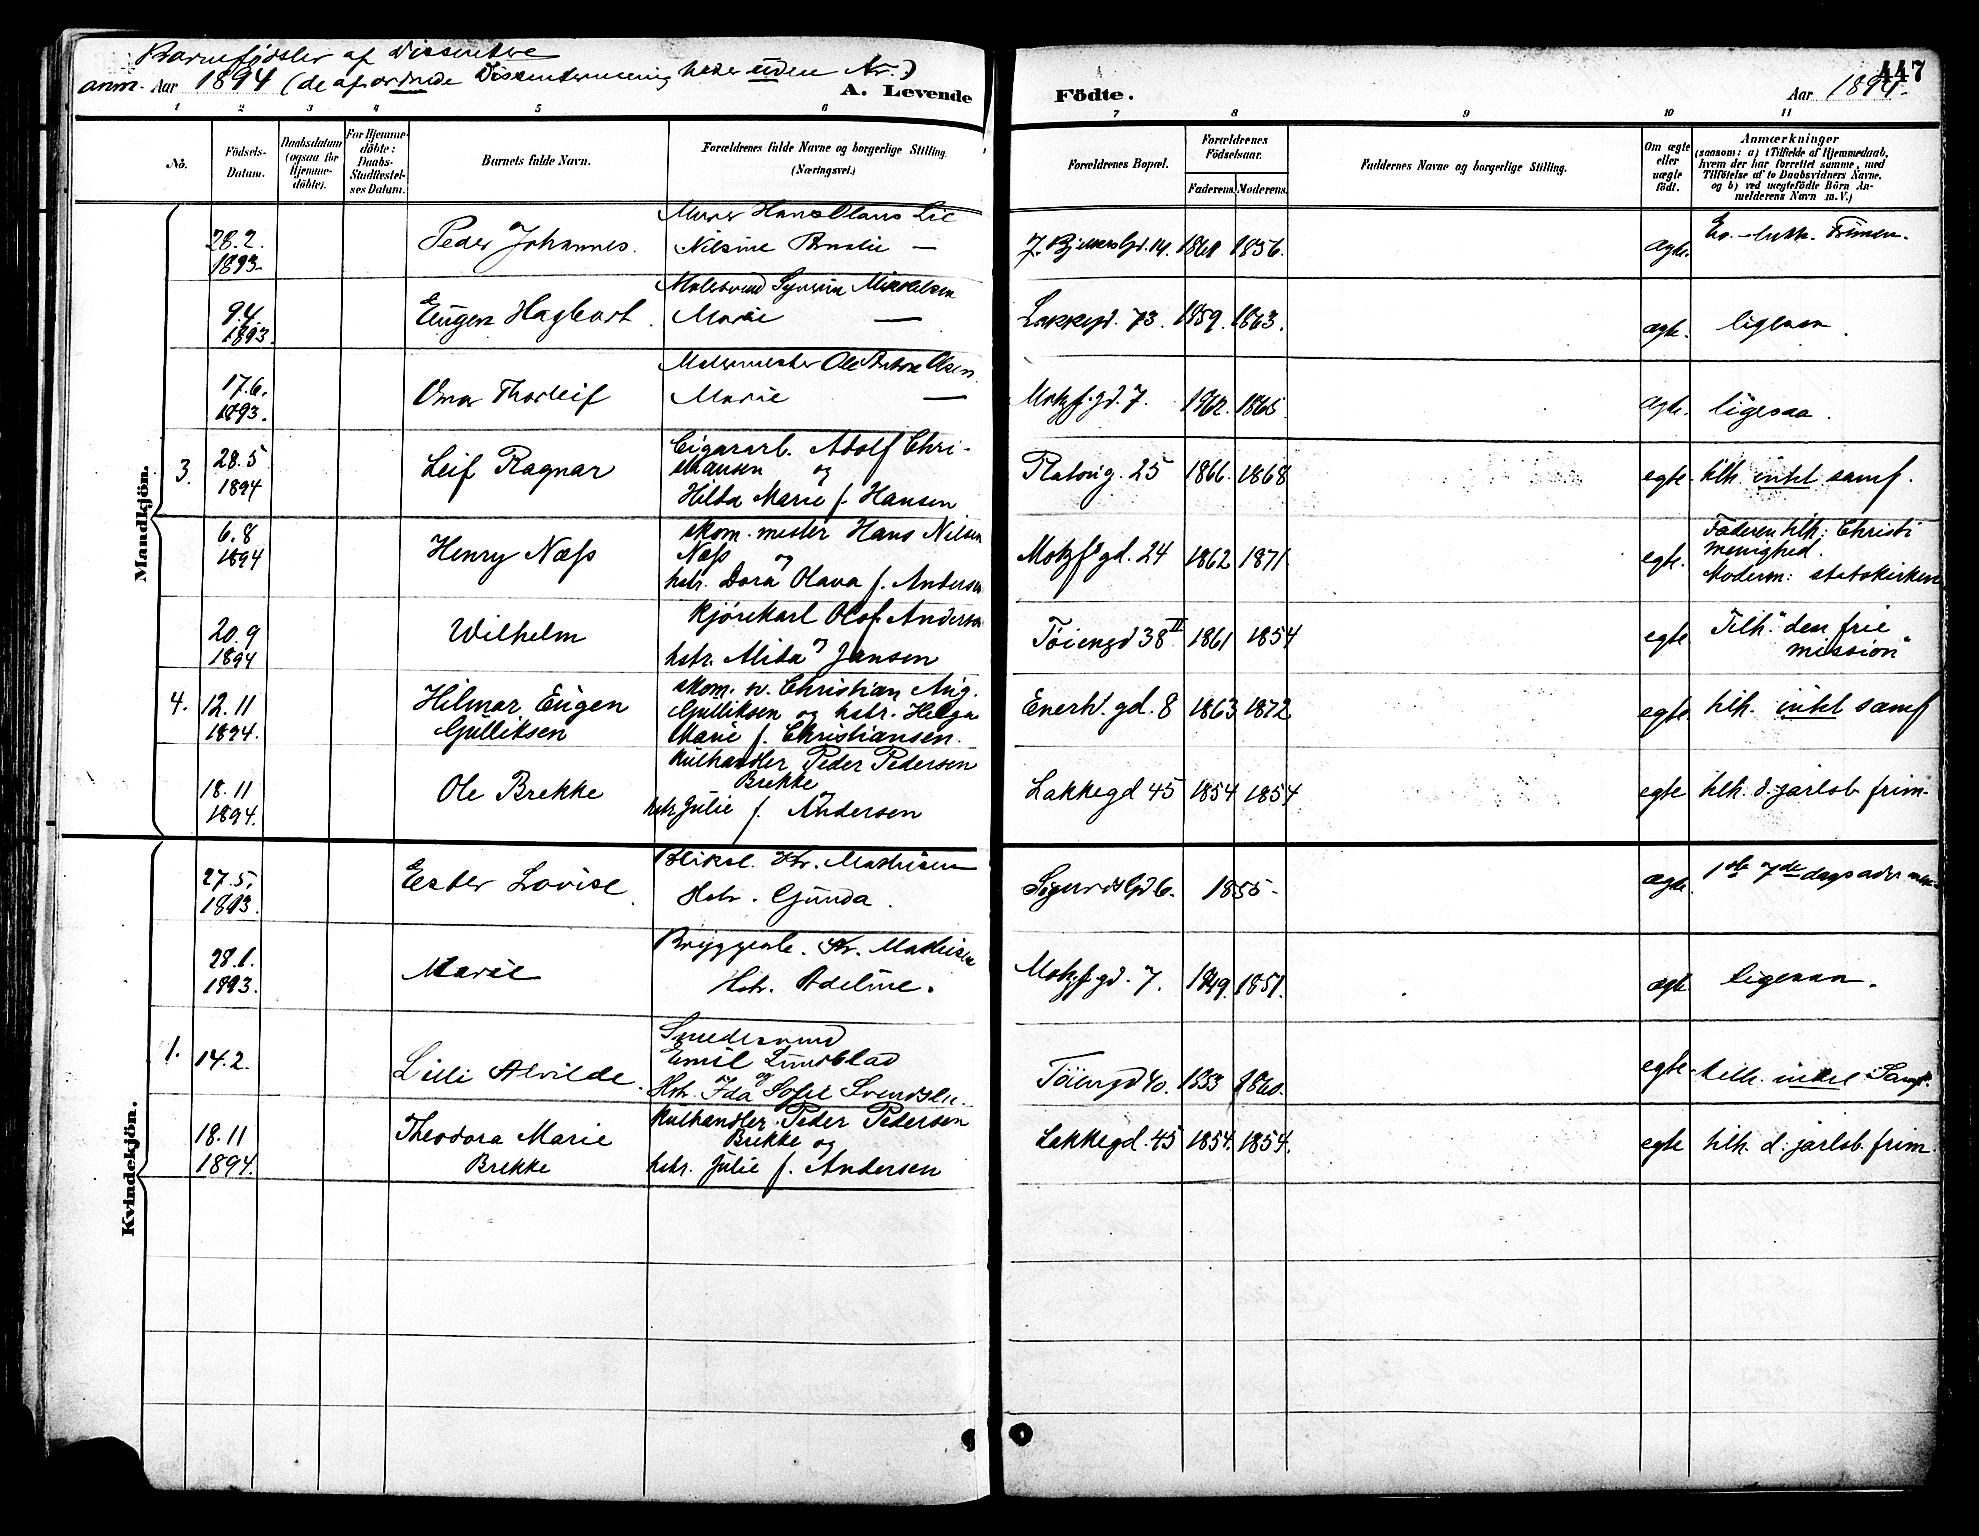 Barnefødsler af Dissentere
anm. Aar 1894 (de af ordnede Dissentermenigheder uden Nr.)
A. Levende Födte.
Aar 1894.
447
1 2 3 4 5 6 7 8 9 10 11
Nô.
Födsels-Datum.
Daabsdatum (ogsaa for Hjemmedöbte).
For Hjemmedöbte: Daabs-Stadfæstelses Datum.
Barnets fulde Navn.
Forældrenes fulde Navne og borgerlige Stilling. (Næringsvei.)
Forældrenes Bopæl.
Forældrenes Födselsaar.
Faderens. Moderens.
Faddernes Navne og borgerlige Stilling.
Om ægte eller uægte födt.
Anmærkninger (saasom: a) i Tilfælde af Hjemmedaab, hvem der har forrettet samme, med Tilföielse af to Daabsvidners Navne, og b) ved uegtefödte Börn Anmelderens Navn m. V.)
Mandkjön.
28.2. 1893. Peder Johannes. Murer Hans Olaus Lie
Nilsine Amalie — 1861 1856. ægte. Ev.-luth. Frimen.
9.4. 1893. Eugen Hagbart. Malersvend Syverin Mikkelsen
Marie — Lakkegd. 73. 1859. 1863. ægte. ligesaa.
17.6. 1893. Omar Thorleif Malermester Ole Anton Olsen
Marie — Motzf.gd. 7. 1862. 1865 ægte. ligesaa.
3. 28.5 1894 Leif Ragnar Cigararb. Adolf Christiansen og
Hilda Marie f. Hansen Platoug. 25 1866. 1868 egte. tilh. intet samf.
6.8 1894 Henry Næss skom. mester Hans Nilsen
Næss og
hstr. Dora Olava f. Andersen Motzf gd. 24 1862 1871. egte. Faderen tilh: Christi
menighed.
Moderen: statskirken
20.9 1894 Wilhelm Kjørekarl Olof Anderson
og
hstr. Alida Jansen Tøiengd 38 II 1861 1854 egte Tilh. "den frie
mission"
4. 12.11 1894. Hilmar Eugen
Gulliksen skom. sv. Christian Aug.
Gulliksen og hstr. Helga
Marie f. Christiansen. Enerh. gd. 8 1863 1872 egte tilh. intet samf
18.11 1894. Ole Brekke Kulhandler Peder Pedersen
Brekke og
hstr. Julie f. Andersen Lakkegd 45 1854 1854 egte tilh. d. jarlsb frim.
Kvindekjön.
27.5. 1893. Ester Lovise. Bliksl. Kr. Mathisen
Hstr. Gunda. Sigurdsgd 6. 1855- ægte. 1ste 7de dags
28.1. 1893. Marie Bryggearb. Kr. Mathisen
Hstr. Adeline. Motzf.gd. 7. 1849. 1851. ægte ligesaa.
1. 14.2. Lilli Alvilde. Smedesvend
Emil Lundblad
og
Hstr. Ida Sofie Svendsen. Tøiengd 40. 1853 1860. egte tilh. intet Samf.
18.11 1894. Theodora Marie
Brekke Kulhandler Peder Pedersen
Brekke og
hstr. Julie f. Andersen Lakkegd. 45 1854. 1854. egte tilh. d. jarlsb. frim.